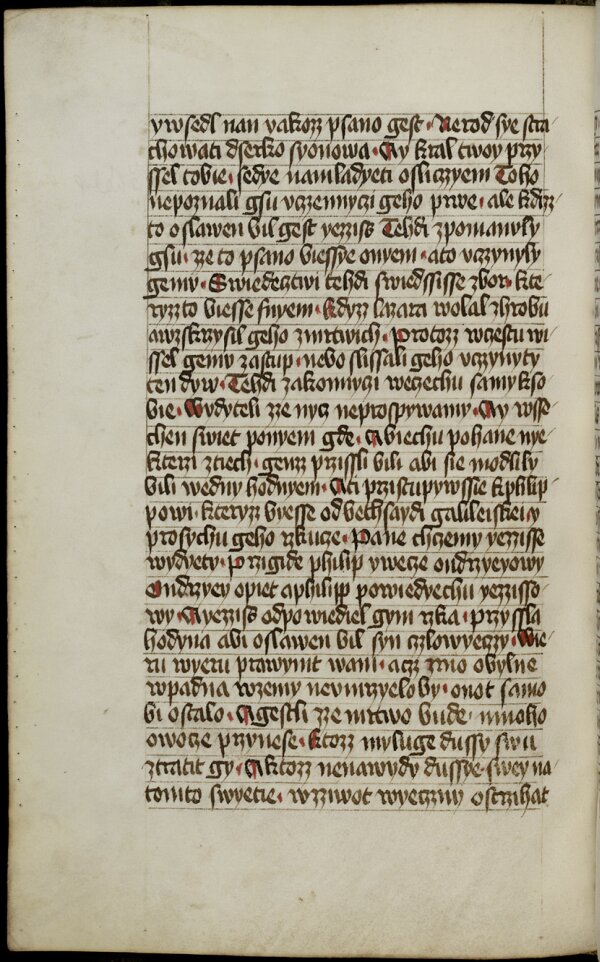 ywsedl nan yakozz psano gest · Nerod sye stra
chowati dserko syonowa · Ay kral twoy przy
ssel tobie · sedye namladyeti osliczyem Toho
nepoznali gsu vczennyczi geho prwe · ale kdyz
to oslawen bil gest yezziss Tehdi zpomanuly
gsu · ze to psano biessye onyem · ato vczynyly
gemu · Swiedecztwi tehdi swiedssisse zbor · kte
ryzzto biesse snyem · kdyzz lazara wolal zhrobu
awzkrzysil geho zmrtwich · Protozz wczestu wi
ssel gemu zastup · nebo slissali geho vczynyty
ten dyw · Tehdi zakonnyczi wecechu samykso
bie · Wydyteli ze nycz neprospywamy · Ay wsse
chen swiet ponyem gde · Abiechu pohane nye
kterzi ztiech · genzz przissli bili abi sie modlily
bili wedny hodnyem · Ati przistupywssie kphilip
powi · kteryzz byesse odbethsaydi galileiskei y
prosychu geho rzkucze · Pane chczemy yezzisse
wydyety · Przigide philip ywecze ondrzyeyowy
Ondrzyey opiet aphilipp powiedyechu yezzisso
wy · Ayezziss odpowiediel gym rzka · Przyssla
hodyna abi oslawen bil syn czlowyeczy · Wie
ru wyeru prawymt wam · acz zrno obylne
wpadna wzemy nevmrzyelo by · onot samo
bi ostalo · Agestli ze mrtwo bude · mnoho
owocze przynese · Ktozz myluge dussy swu
ztratit gy · Aktozz nenawydy dussye swey na
tomto swyetie · wzziwot wyeczny ostrzihat